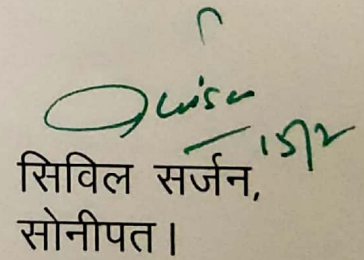 15/2
सिविल सर्जन,
सोनीपत।